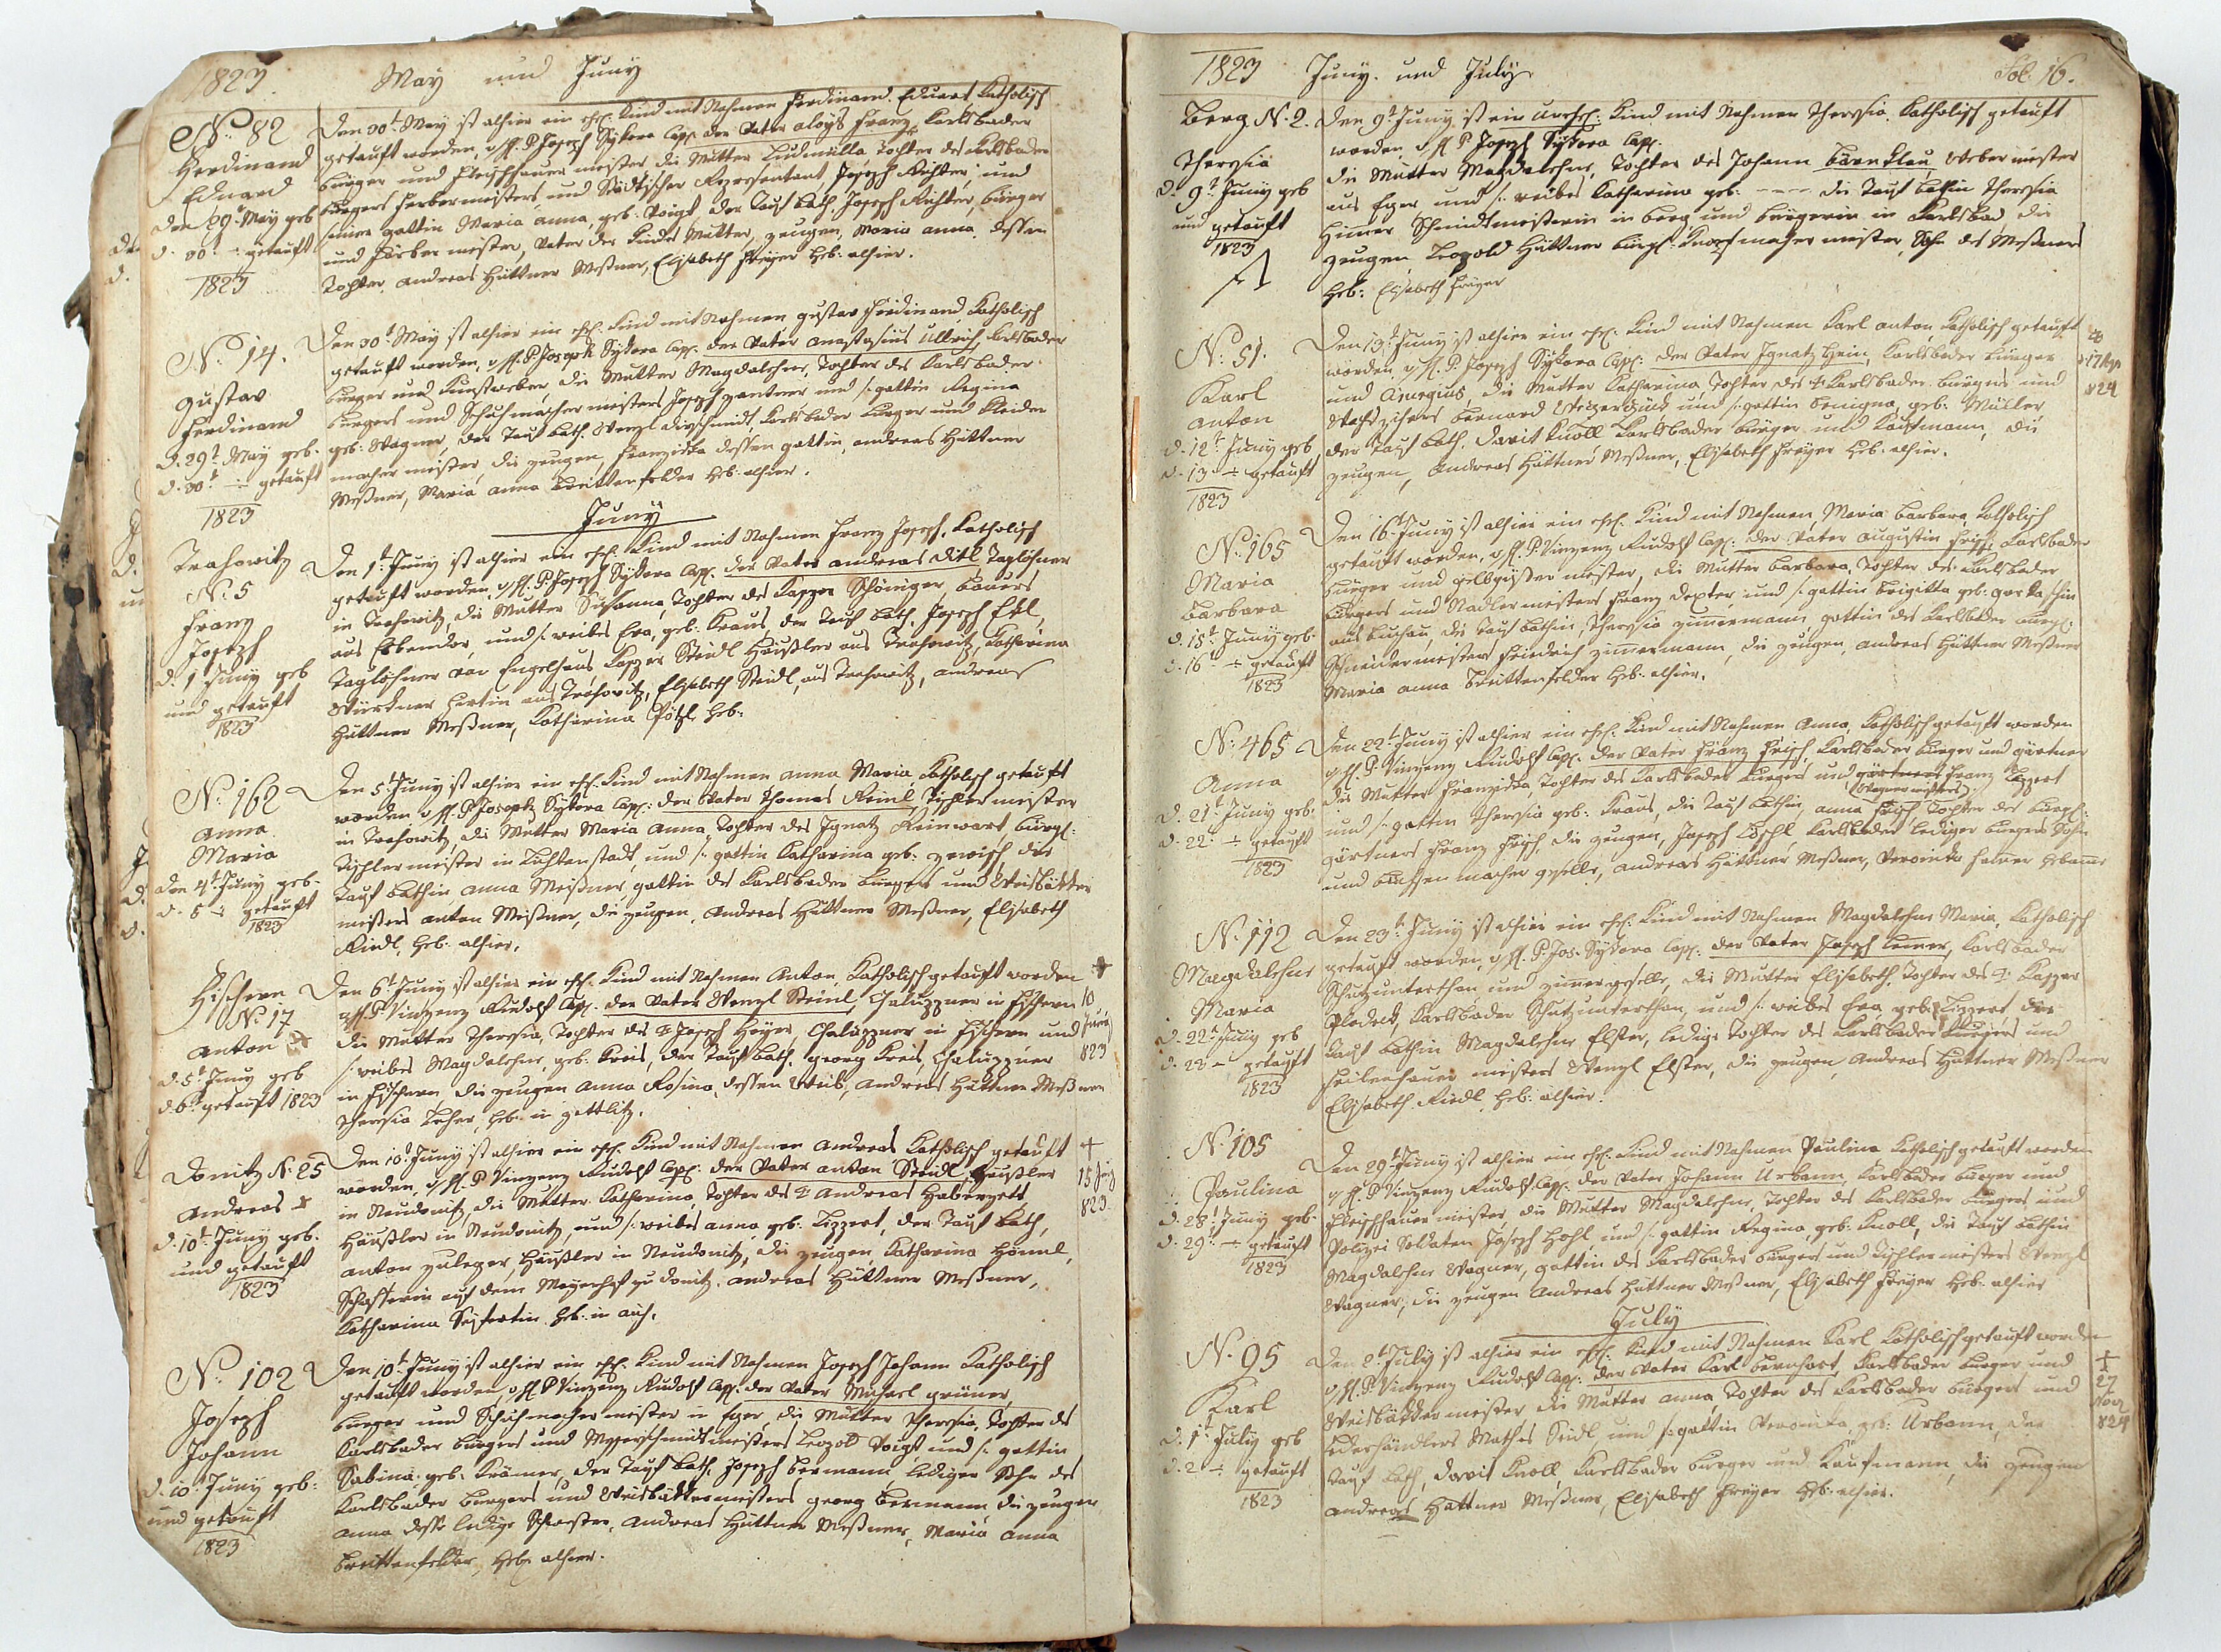 1823. May und Juny
No. 82
Ferdinand
Eduard
den 29t. May geb
d. 30t. -:- getauft
1823
Den 30t. May ist alhier ein ehl. Kind mit Nahmen Ferdinand Eduart Katholisch
getauft worden, P. Joseph Sykora Cap. der Vater Aloys Franz, Karlsbader
bürger und Fleischhauer meister die Mutter Ludmilla, Tochter des Karlsbader
bürgers Färbermeisters und Städtischer Representant, Joseph Richter, und
seiner gattin Maria anna, geb. Voigt der Tauf Path. Joseph Richter, bürger
und Färber meister, Vater der Kindes Mutter, zeugen, Maria anna, dessen
Tochter, andreas Hüttner Meßner, Elisabeth Freyer Heb: alhier.
No. 14.
Gustav
Ferdinand
d. 29t. May geb.
d. 30t. -:- getauft
1823
Den 30t. May ist alhier ein ehl. Kind mit Nahmen gustav Ferdinand Katholisch
getauft worden, P. Joseph Sykora Cap. der Vater Anastasius Ullrich, Karlsbader
bürger und die Mutter Magdalehna, Tochter des Karlsbader
bürgers und Schuhmacher meisters Joseph und s. gattin Regina
geb. Wagner, der Tauf Path. Wenzl Karlsbader bürger und Kleider
macher meister, die zeugen, Franziska dessen gattin, andreas Hüttner
Meßner, Maria anna Breittenfelder Heb. alhier.
Juny
Trahowitz
No. 5
Franz
Joseph
d. 1 Juny geb
und getauft
1823
Den 1t. Juny ist alhier ein ehl. Kind mit Nahmen Franz Joseph, Katholisch
getauft worden, P. Joseph Sykora Cap. der Vater andreas Ditl Taglöhner
in Trahowitz, die Mutter Susanna, Tochter des Kasper Schöniger, bauers
aus und s. weibes Eva, geb. Kraus, der Tauf Path. Joseph
Taglöhner von Engelhaus, Kasper Steidl Häußler aus Trahowitz, Katharina
aus Trahowitz, Elisabeth Steidl, aus Trahowitz, andreas
Hüttner Meßner, Katharina Pößl Heb:
No. 162
Anna
Maria
den 4t. Juny geb.
d. 5 -:- getauft
1823
Den 5t. Juny ist alhier ein ehl. Kind mit Nahmen anna Maria Katholisch getauft
worden P. Joseph Sykora Cap: der Vater Thomas Tischler meister
in Trahowitz, die Mutter Maria Anna, Tochter des Ignatz Reinwart bürgl:
Tischlermeister in Lichtenstadt, und s. gattin Katharina geb. die
Tauf Pathin anna Meißner, gattin des Karlsbader bürgers und Weisbäkker
meisters anton Meißner, die zeugen, Andreas Hüttner Meßner, Elisabeth
Riedl, Heb: alhier.
Fischern
No. 17
Anton
d. 5t. Juny geb
d. 6t. getauft 1823
Den 6t. Juny ist alhier ein ehl. Kind mit Nahmen Anton, Katholisch getauft worden
P. Vinzenz Rudolf Cap. der Vater Wenzl Steinl, Chalupner in Fischern
die Mutter Theresia, Tochter des Joseph Heyer, Chalupner in Fischern und
s. weibes Magdalehna, geb. Kreis, der Tauf Path. georg Kreis, Chalupner
in Fischern, die zeugen anna Rosina, dessen Weib, Andreas Hüttner Meßner
Theresia Heb: in Zettlitz.
10
Juny
823
Donitz N. 25
Andreas
d. 10t. Juny geb.
und getauft
1823
Den 10t. Juny ist alhier ein ehl. Kind mit Nahmen andreas Katholisch getauft
worden, P. Vinzenz Rudolf Cap: der Vater anton Steidl Häußler
in Neudonitz, die Mutter Katharina, Tochter des andreas Haberzett
Häußler in Neudonitz, und s. weibes anna geb. Lippert, der Tauf Path,
anton Zuleger, Häußler in Neudonitz, die zeugen, Katharina
Schafferin auf dem Mayerhof zu Donitz. andreas Hüttner Meßner,
Katharina Seyfertin Heb: in aich.
15 July
823.
No. 102
Joseph
Johann
d. 10t. Juny geb:
und getauft
1823
Den 10t. Juny ist alhier ein ehl. Kind mit Nahmen Joseph Johann Katholisch
getauft worden, P. Vinzenz Rudolf Cap. der Vater Michael grüner,
bürger und Schuhmacher meister in Eger, die Mutter Theresia, Tochter des
Karlsbader bürgers und Messerschmidtmeisters Leopold Voigt und s. gattin
Sabina: geb. Krämer, der Tauf Path, Joseph bermann lediger Sohn des
Karlsbader bürgers und Weisbäkkermeisters georg bermann die zeugen
anna dessen ledige Schwester, Andreas Hüttner Meßner, Maria Anna
Breittenfelder, Heb: alhier.
1823 Juny. und July. Fol. 16.
Berg N. 2.
Theresia
d. 9t. Juny geb
und getauft
1823
Den 9t. Juny ist ein unehl: Kind mit Nahmen Theresia. Katholisch getauft
worden P. Joseph Sykora Cap.
die Mutter Magdalehna, Tochter des Johann bärnklau, Weber meister
aus Eger und s. weibes Katharina geb. ---- die Tauf Pathin Theresia
Schmidtmeisterin in berg und bürgerin in Karlsbad, die
zeugen Leopold Hüttner bürgl. Knopfmacher meister, Sohn des Meßners
Heb: Elisabeth Freyer
No. 51.
Karl
anton
d. 12t. Juny geb
d. 13 -:- getauft
1823
Den 13t. Juny ist alhier ein ehl. Kind mit Nahmen Karl anton Katholisch getauft
worden, P. Joseph Sykora Cap: der Vater Ignatz Hein, Karlsbader bürger
und Chyrurgius, die Mutter Katharina, Tochter des Karlsbader bürgers und
Wachsziehers bernard und s. gattin benigna, geb. Müller
der Tauf Path. Davit Knoll Karlsbader bürger und Kaufmann, die
zeugen, Andreas Hüttner Meßner, Elisabeth Freyer Heb. alhier.
824
No. 165
Maria
Barbara
d. 15t. Juny geb.
d. 16 -:- getauft
1823
Den 16t. Juny ist alhier ein ehl. Kind mit Nahmen, Maria barbara, Katholisch
getauft worden, P. Vinzenz Rudolf Cap: der Vater augustin Karlsbader
bürger und gelbgießer meister, die Mutter barbara, Tochter des Karlsbader
bürgers und Nadlermeisters Franz Dexter, und s. gattin brigitta geb:
aus Luchau, die Tauf Pathin, Theresia zimermann, gattin des Karlsbader bürgl.
Schneidermeisters Friedrich zimermann, die zeugen, andreas Hüttner Meßner
Maria anna Breittenfelder Heb. alhier.
No. 465
Anna
d. 21t. Juny geb.
d. 22. -:- getauft
1823
Den 22t. Juny ist alhier ein ehl. Kind mit Nahmen Anna, Katholisch getauft worden
P. Vinzenz Rudolf Cap. der Vater Franz Karlsbader bürger und gärtner
die Mutter Franziska, Tochter des Karlsbader bürgers und gärtners Franz Lippert
und s. gattin Theresia geb: Kraus, die Tauf Pathin, anna Tochter des bürgl.
gärtners Franz die zeugen, Joseph Löschl, Karlsbader lediger bürgers Sohn
und büchsenmacher geselle, andreas Hüttner Meßner, Veronika Hebamme
No. 112
Magdalehna
Maria
d. 22t. Juny geb
d. 23 -:- getauft
1823
Den 23t. Juny ist alhier ein ehl. Kind mit Nahmen Magdalehna Maria, Katholisch
getauft worden, P. Jos. Sykora Cap: der Vater Joseph Karlsbader
Schutzunterthan und zimergeselle, die Mutter Elisabeth, Tochter des Kasper
Karlsbader Schutzunterthan, und s. weibes Eva, geb. Lippert, die
Tauf Pathin Magdalehna Elster, ledige Tochter des Karlsbader bürgers und
Feilenhauer meisters Wenzl Elster, die zeugen, Andreas Hüttner Meßner
Elisabeth Riedl, Heb. alhier.
N. 105
Paulina
d. 28t. Juny geb.
d. 29t. -:- getauft
1823
Den 29t. Juny ist alhier ein ehl. Kind mit Nahmen Paulina Katholisch getauft worden
P. Vinzenz Rudolf Cap. der Vater Johann Urbann, Karlsbader bürger und
Fleischhauer meister, die Mutter Magdalehna, Tochter des Karlsbader bürgers und
Polizei Soldaten Joseph Hohl, und s. gattin Regina, geb. Knoll, die Tauf Pathin
Magdalehna Wagner, gattin des Karlsbader bürgers und Tischlermeisters Wenzl
Wagner, die zeugen Andreas Hüttner Meßner, Elisabeth Freyer Heb. alhier
July
No. 95
Karl
d. 1t. July geb
d. 2 -:- getauft
1823
Den 2t. July ist alhier ein ehl. Kind mit Nahmen Karl Katholisch getauft worden
P. Vinzenz Rudolf Cap: der Vater Karl bernhart, Karlsbader bürger und
Weisbäkkermeister die Mutter anna, Tochter des Karlsbader bürgers und
Lederhändlers Mathes Seidl, und s. gattin Veronika, geb. Urbann, der
Tauf Path, Davit Knoll, Karlsbader bürger und Kaufmann, die zeugen
andreas Hüttner Meßner, Elisabeth Freyer Heb. alhier.
27
Nov
824